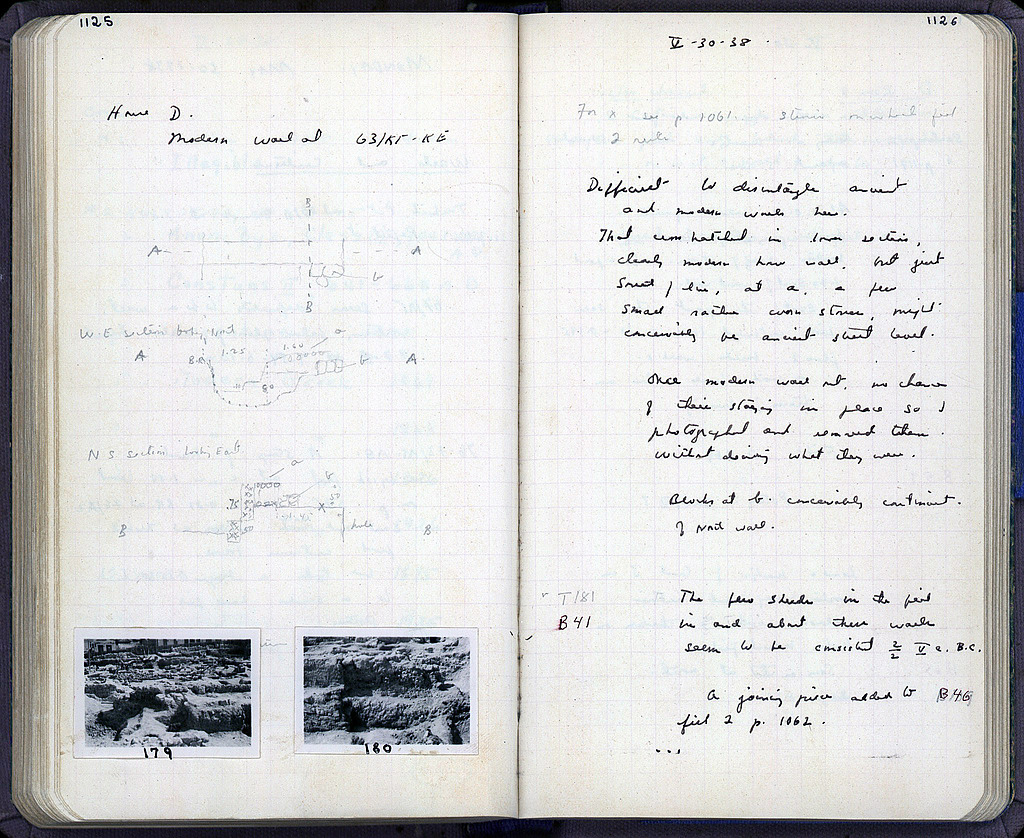 1125
House D.
Modern wall at 63/ΚΓ-ΚΕ
B
A A
b
B
W-E section looking North
a
A B.A 1.25 1.60 b A
80
N S section looking East
a
b
.75 X
B hole B
179
180
1126
V-30-38
For x see p. 1061. stones
Difficult to disentangle ancient
and modern walls here.
That cross hatched in lower section,
clearly modern house wall. But just
South of this, at a, a few
small rather worn stones, might
conceivably be ancient street level.
Once modern wall out, no chance
of their staying in place so I
photographed and removed them.
without drawing what they were.
Blocks at b conceivably
of North wall.
T181 The few sherds in the fill
B41 in and about these walls
seem to be consistent 2/2 V c. B.C.
A joining piece added to B46
2 p. 1062.
...